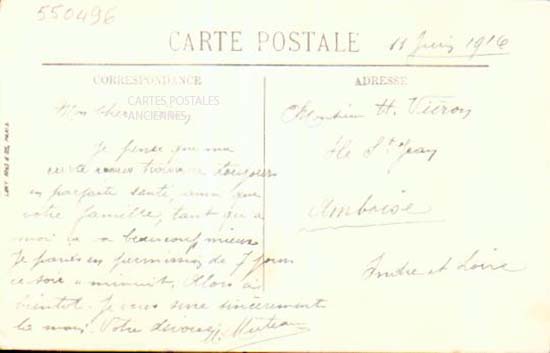 550496
CARTE POSTALE
11 Juin 1916
CORRESPONDANCE
ADRESSE
Mon cher
CARTES POSTALES
ANCIENNES
Je pense que ma
carte vous trouvera toujours
en parfaite santé, ainsi que
votre famille, tant qu'à
moi ça va beaucoup mieux
Je pars en permission de 7 jours
ce soir à minuit. Alors à
bientôt. Je vous serre sincèrement
la main. Votre dévoué
Monsieur H. Viéron
Ile St Jean
Amboise
Indre et Loire